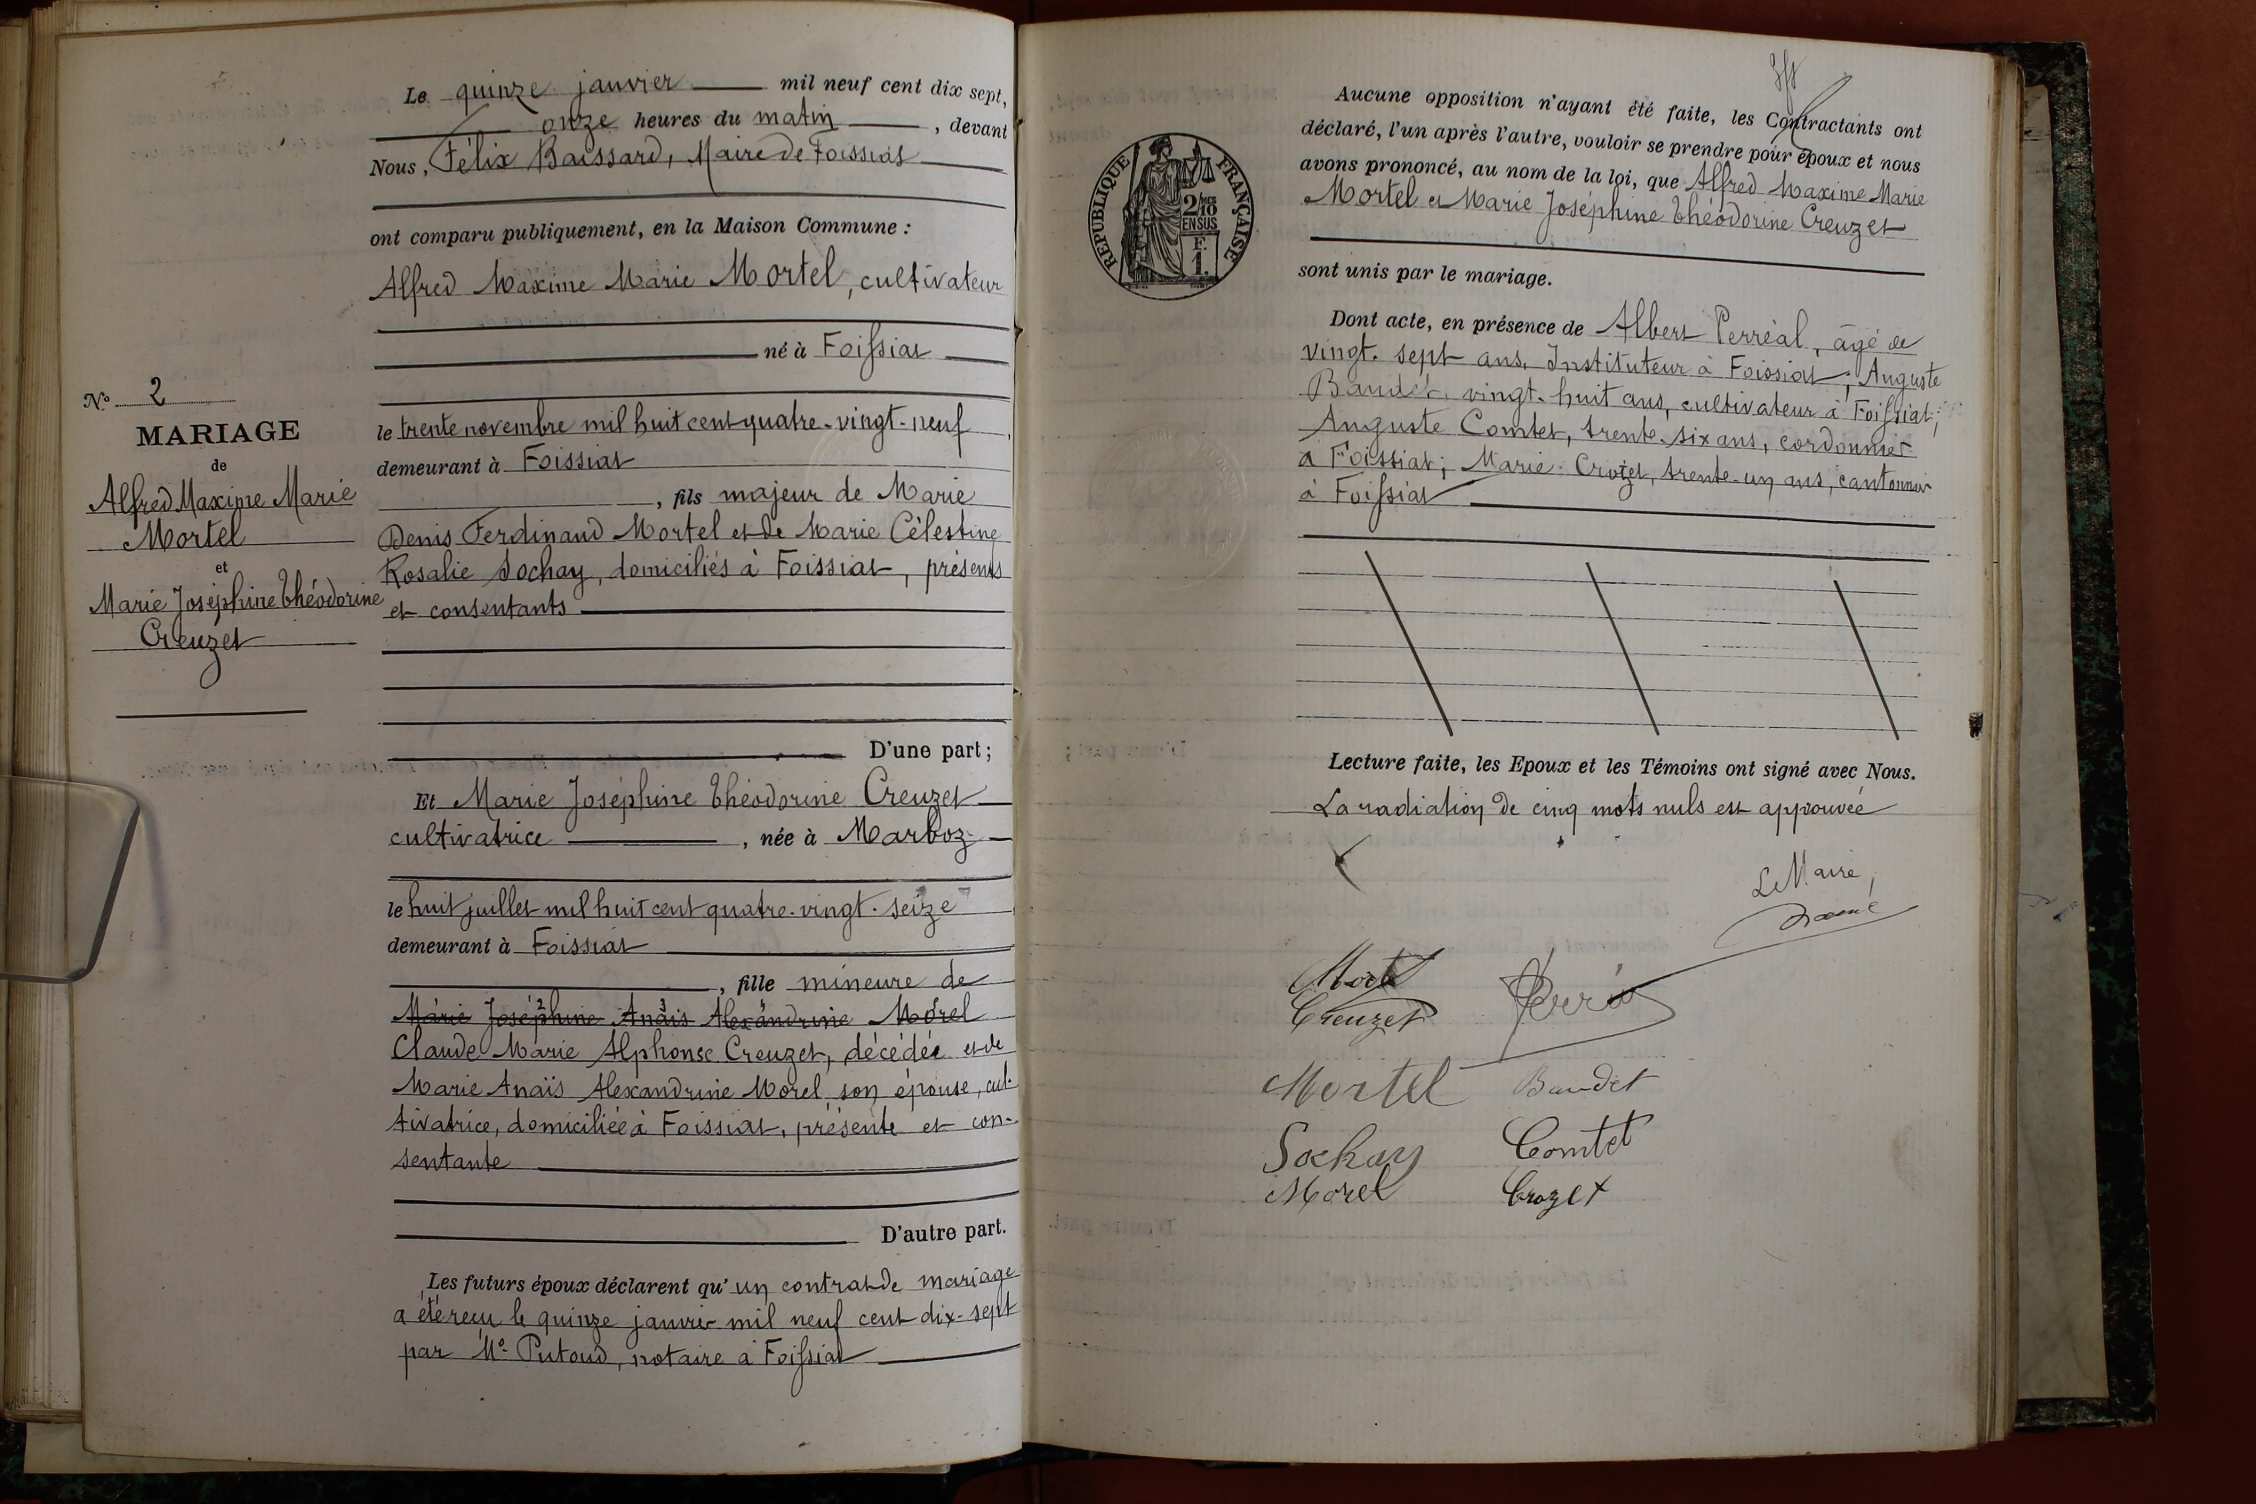 Le quinze janvier mil neuf cent dix sept,
onze heures du matin, devant
Nous, Félix Baissard, Maire de Foissiat
ont comparu publiquement, en la Maison Commune :
Alfred Maxime Marie Mortel, cultivateur
né à Foissiat
le trente novembre mil huit cent quatre-vingt-neuf,
demeurant à Foissiat
, fils majeur de Marie
Denis Ferdinand Mortel et de Marie Célestine
Rosalie Sochay, domiciliés à Foissiat, présents
et consentants
D'une part;
N° 2
MARIAGE
de
Alfred Maxime Marie
Mortel
et
Marie Joséphine Théodorine
Creuzet
Et Marie Joséphine Théodorine Creuzet
cultivatrice, née à Marboz
le huit juillet mil huit cent quatre-vingt-seize
demeurant à Foissiat
, fille mineure de
Marie Joséphine Anaïs Alexandrine Morel
Claude Marie Alphonse Creuzet, décédée et de
Marie Anaïs Alexandrine Morel, son épouse, cul-
tivatrice, domiciliée à Foissiat, présente et con-
sentante
D'autre part.
Les futurs époux déclarent qu'un contrat de mariage
a été reçu le quinze janvier mil neuf cent dix-sept
par Me Putoud, notaire à Foissiat
RÉPUBLIQUE FRANÇAISE
2/10
EN SUS
F.
1.
Aucune opposition n'ayant été faite, les Contractants ont
déclaré, l'un après l'autre, vouloir se prendre pour époux et nous
avons prononcé, au nom de la loi, que Alfred Maxime Marie
Mortel et Marie Joséphine Théodorine Creuzet
sont unis par le mariage.
Dont acte, en présence de Albert Perréal, âgé de
vingt-sept ans, Instituteur à Foissiat; Auguste
Baudet, vingt-huit ans, cultivateur à Foissiat;
Auguste Comtet, trente-six ans, cordonnier
à Foissiat; Marie Crozet, trente-un ans, cantonnier
à Foissiat
Lecture faite, les Epoux et les Témoins ont signé avec Nous.
La radiation de cinq mots nuls est approuvée
Le Maire,
Mortel
Creuzet
Mortel Baudet
Sochay Comtet
Morel Crozet